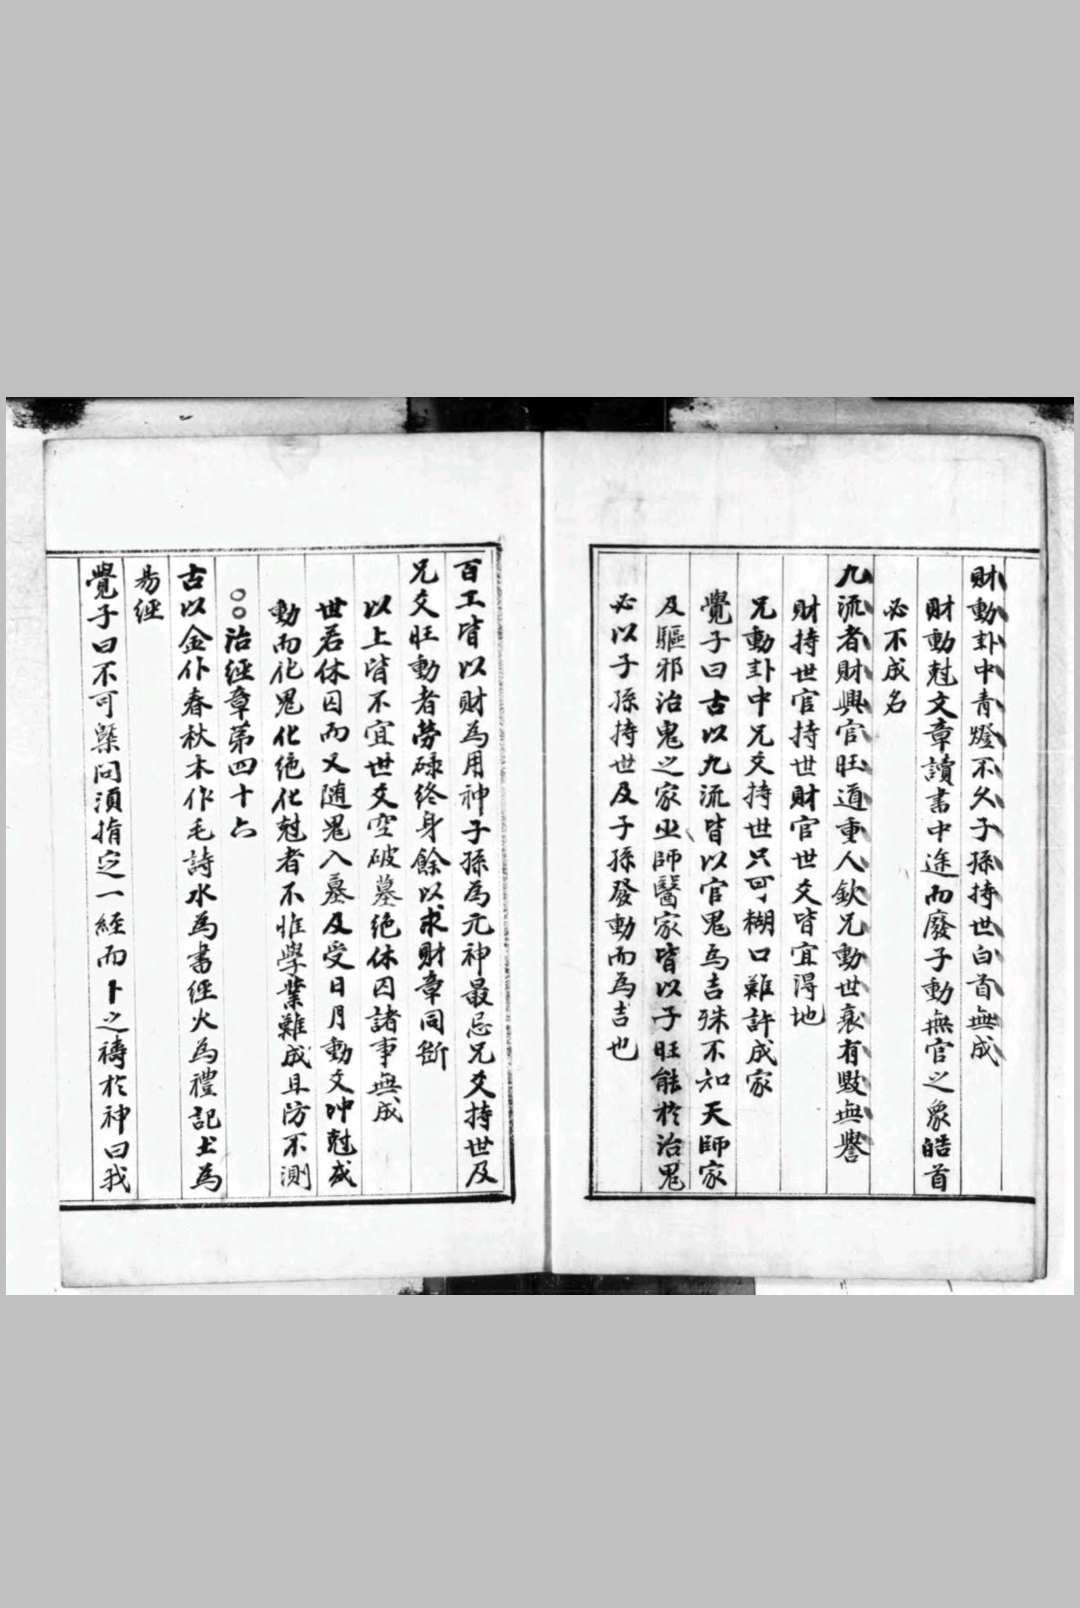 財動卦中青燈不久子孫持世白首無成
財動尅文章讀書中途而廢子動無官之象皓首
必不成名
九流者財興官旺道重人欽兄動世衰有毀無譽
財持世官持世財官世爻皆宜得地
兄動卦中兄爻持世只可糊口難許成家
覺子曰古以九流皆以官鬼為吉殊不知天師家
及驅邪治鬼之家巫師醫家皆以子旺能於治鬼
必以子孫持世及子孫發動而為吉也
百工皆以財為用神子孫為元神最忌兄爻持世及
兄爻旺動者勞碌終身餘以求財章同斷
以上皆不宜世爻空破墓絕休囚諸事無成
世若休囚而又随鬼入墓及受日月動爻冲尅或
動而化鬼化絕化尅者不惟學業難成且防不測
○○治經章第四十六
古以金作春秋木作毛詩水為書經火為禮記土為
易經
覺子曰不可槩问須指定一經而卜之禱於神曰我